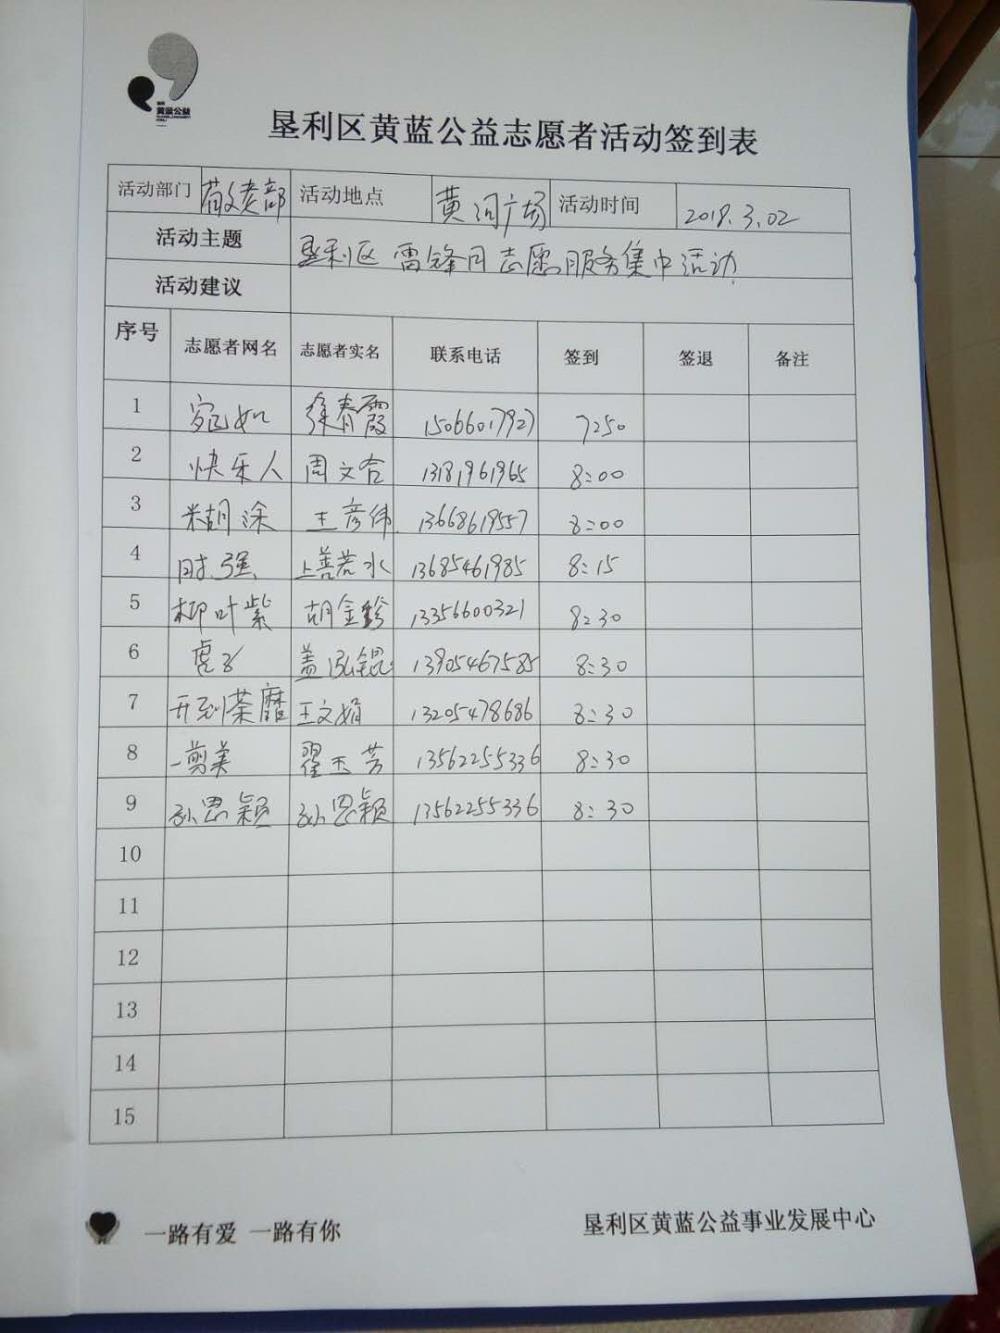 黄蓝公益
垦利区黄蓝公益志愿者活动签到表
活动部门 敬老部 活动地点 黄河广场 活动时间 2018.3.02
活动主题 垦利区雷锋月志愿服务集中活动
活动建议
序号 志愿者网名 志愿者实名 联系电话 签到 签退 备注
1 宛如 徐春霞 15066017927 7:50
2 快乐人 周文合 13181961965 8:00
3 糊涂 王彦伟 13668619557 8:00
4 时强 上善若水 13685461985 8:15
5 柳叶紫 胡金珍 13356600321 8:30
6 虎子 盖泓锟 13905467585 8:30
7 开到荼蘼 王文娟 13205478686 8:30
8 一剪美 翟玉芳 13562255336 8:30
9 孙思颖 孙思颖 13562255336 8:30
10
11
12
13
14
15
一路有爱 一路有你
垦利区黄蓝公益事业发展中心